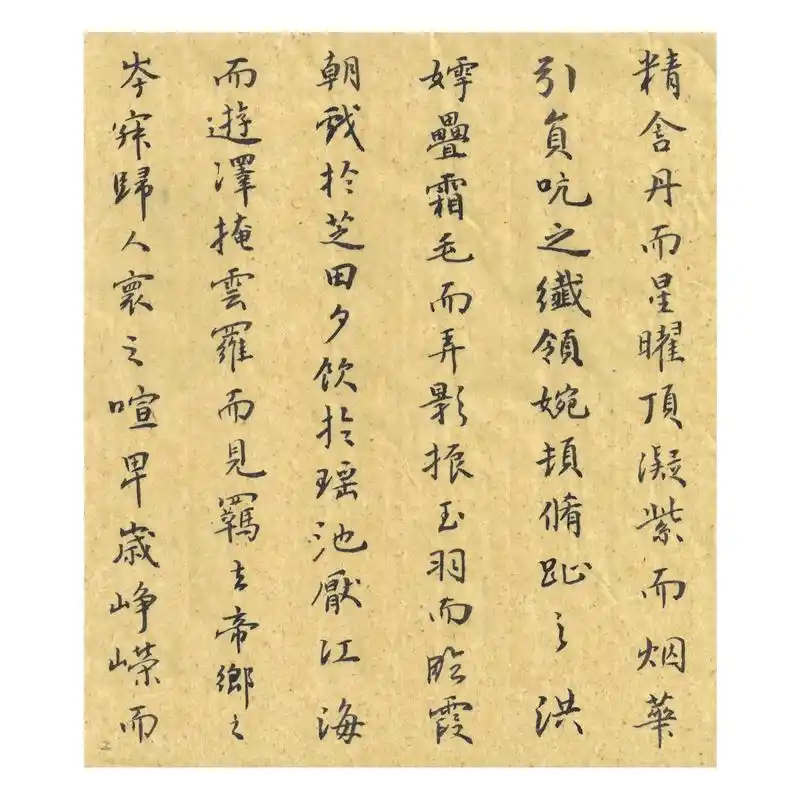 精含丹而星曜頂凝紫而烟華
引員吭之纖領婉頓脩趾之洪
姱疊霜毛而弄影振玉羽而臨霞
朝戲於芝田夕飲於瑶池厭江海
而遊澤掩雲羅而見羈去帝鄉之
岑寂歸人寰之喧卑歲崢嶸而
2